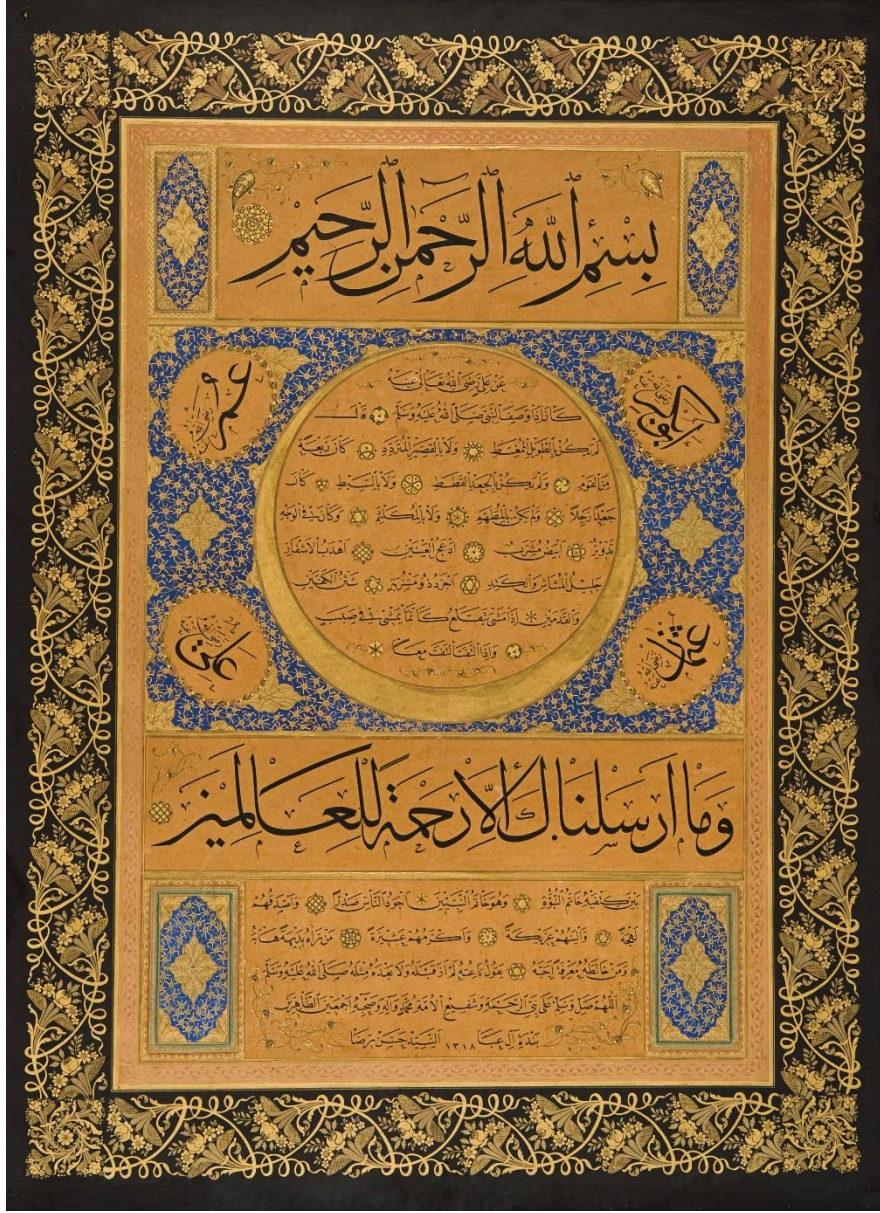 بسم الله الرحمن الرحيم
ابوبكر رضي الله عنه
عمر رضي الله عنه
عن علي رضي الله تعالى عنه
كان اذا وصف النبي صلى الله عليه وسلم قال
لم يكن بالطويل الممغط ولا بالقصير المتردد كان ربعة
من القوم ولم يكن بالجعد القطط ولا بالسبط كان
جعدا رجلا ولم يكن بالمطهم ولا بالمكلثم وكان في الوجه
تدوير ابيض مشرب ادعج العينين اهدب الاشفار
جليل المشاش والكتد اجرد ذو مسربة شثن الكفين
والقدمين اذا مشى تقلع كانما يمشي في صبب
واذا التفت التفت معا
عثمان رضي الله عنه
علي رضي الله عنه
وما ارسلناك الا رحمة للعالمين
بين كتفيه خاتم النبوة وهو خاتم النبيين اجود الناس صدرا واصدقهم
لهجة والينهم عريكة واكرمهم عشيرة من راه بديهة هابه
ومن خالطه معرفة احبه يقول ناعته لم ار قبله ولا بعده مثله صلى الله عليه وسلم
اللهم صل وسلم على نبي الرحمة وشفيع الامة محمد واله وصحبه اجمعين الطاهرين
بنده آل عبا ١٣١٨ السيد حسن رضا